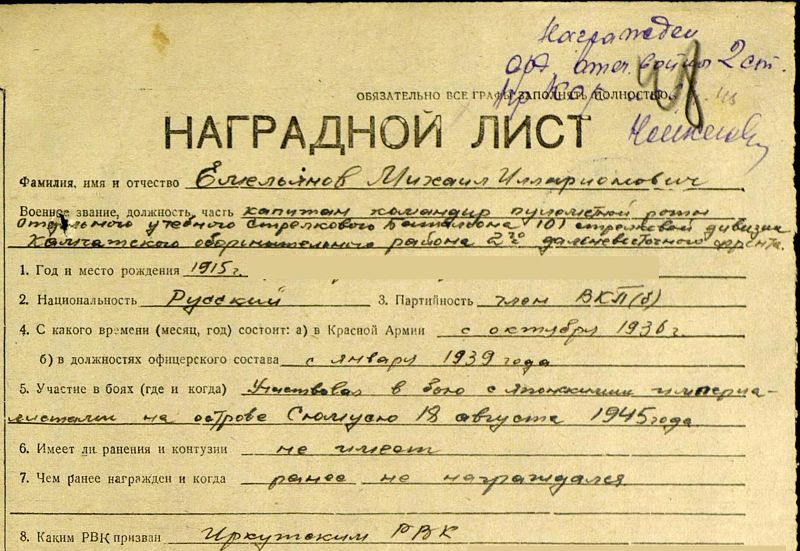 Награжден
орд. отеч. войны 2 ст.
ОБЯЗАТЕЛЬНО ВСЕ ГРАФЫ ЗАПОЛНЯТЬ ПОЛНОСТЬЮ.
НАГРАДНОЙ ЛИСТ
Фамилия, имя и отчество Емельянов Михаил Илларионович
Военное звание, должность, часть капитан командир пулеметной роты
отдельного учебного стрелкового батальона 101 стрелковой дивизии
Камчатского оборонительного района 2го дальневосточного фронта.
1. Год и место рождения 1915г.
2. Национальность Русский 3. Партийность член ВКП(б)
4. С какого времени (месяц, год) состоит: а) в Красной Армии с октября 1936г.
б) в должностях офицерского состава с января 1939 года
5. Участие в боях (где и когда) Участвовал в бою с японскими империа-
листами на острове Сюмусю 18 августа 1945 года
6. Имеет ли ранения и контузии не имеет
7. Чем ранее награжден и когда ранее не награждался
8. Каким РВК призван Иркутским РВК